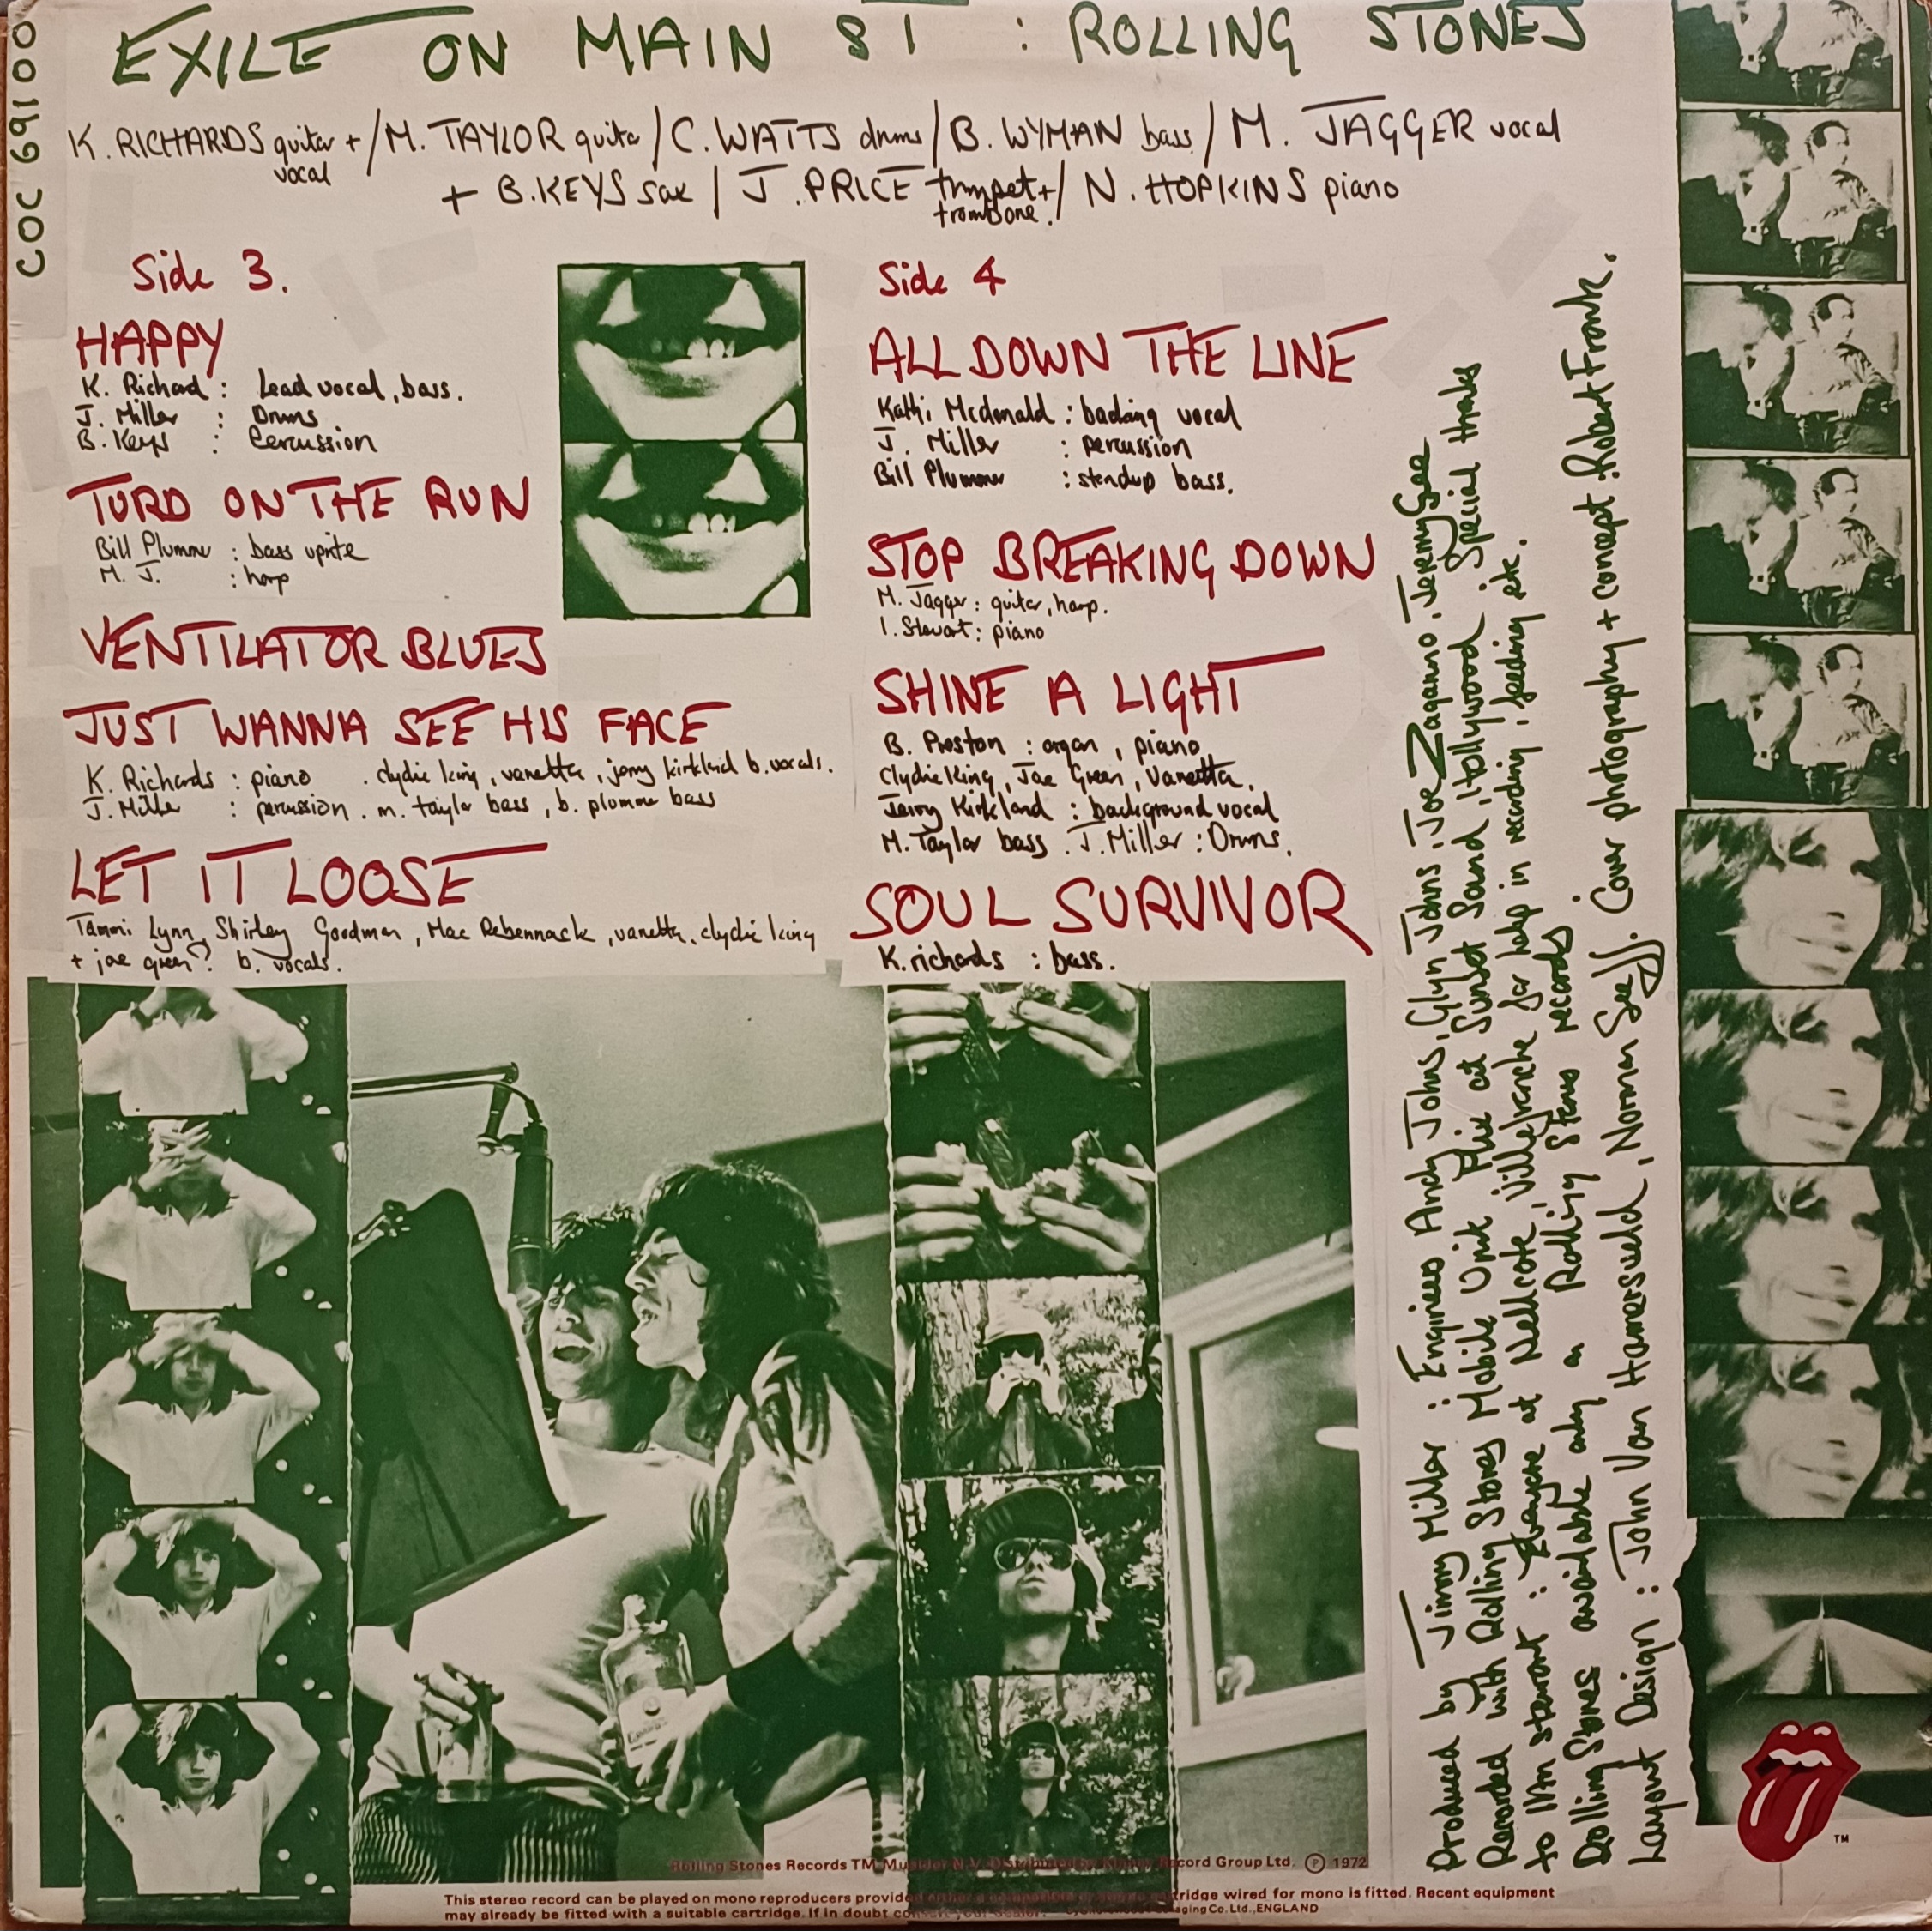 COC 69100
EXILE ON MAIN ST : ROLLING STONES
K. RICHARDS guitar + vocal / M. TAYLOR guitar / C. WATTS drums / B. WYMAN bass / M. JAGGER vocal
+ B. KEYS sax / J. PRICE trumpet + trombone. / N. HOPKINS piano
Side 3.
HAPPY
K. Richard : Lead vocal, bass.
J. Miller : Drums
B. Keys : Percussion
TURD ON THE RUN
Bill Plummer : bass uprite
M. J. : harp
VENTILATOR BLUES
JUST WANNA SEE HIS FACE
K. Richards : piano . clydie king, vanetta, jerry kirkland b. vocals.
J. Miller : percussion . m. taylor bass, b. plummer bass
LET IT LOOSE
Tammi Lynn, Shirley Goodman, Mac Rebennack, vanetta, clydie king
+ joe green? b. vocals.
Side 4
ALL DOWN THE LINE
Kathi Mcdonald : backing vocal
J. Miller : percussion
Bill Plummer : standup bass.
STOP BREAKING DOWN
M. Jagger : guitar, harp.
I. Stewart : piano
SHINE A LIGHT
B. Preston : organ, piano
Clydie King, Joe Green, Vanetta,
Jerry Kirkland : background vocal
M. Taylor bass . J. Miller : Drums.
SOUL SURVIVOR
K. richards : bass.
Produced by Jimmy Miller : Engineers Andy Johns, Glyn Johns, Joe Zagarino, Jeremy Gee
Recorded with Rolling Stones Mobile Unit Plus at Sunset Sound, Hollywood. Special thanks
to Ian stewart : Everyone at Nellcote, Villefranche for help in recording, feeding etc.
Rolling Stones available only on Rolling Stones records
Layout Design : John Van Hamersveld, Norman Seeff. Cover photography + concept : Robert Frank.
TM
Rolling Stones Records TM Record Group Ltd. Ⓟ 1972
This stereo record can be played on mono reproducers provided cartridge wired for mono is fitted. Recent equipment
may already be fitted with a suitable cartridge. If in doubt consult your dealer. Co. Ltd., ENGLAND